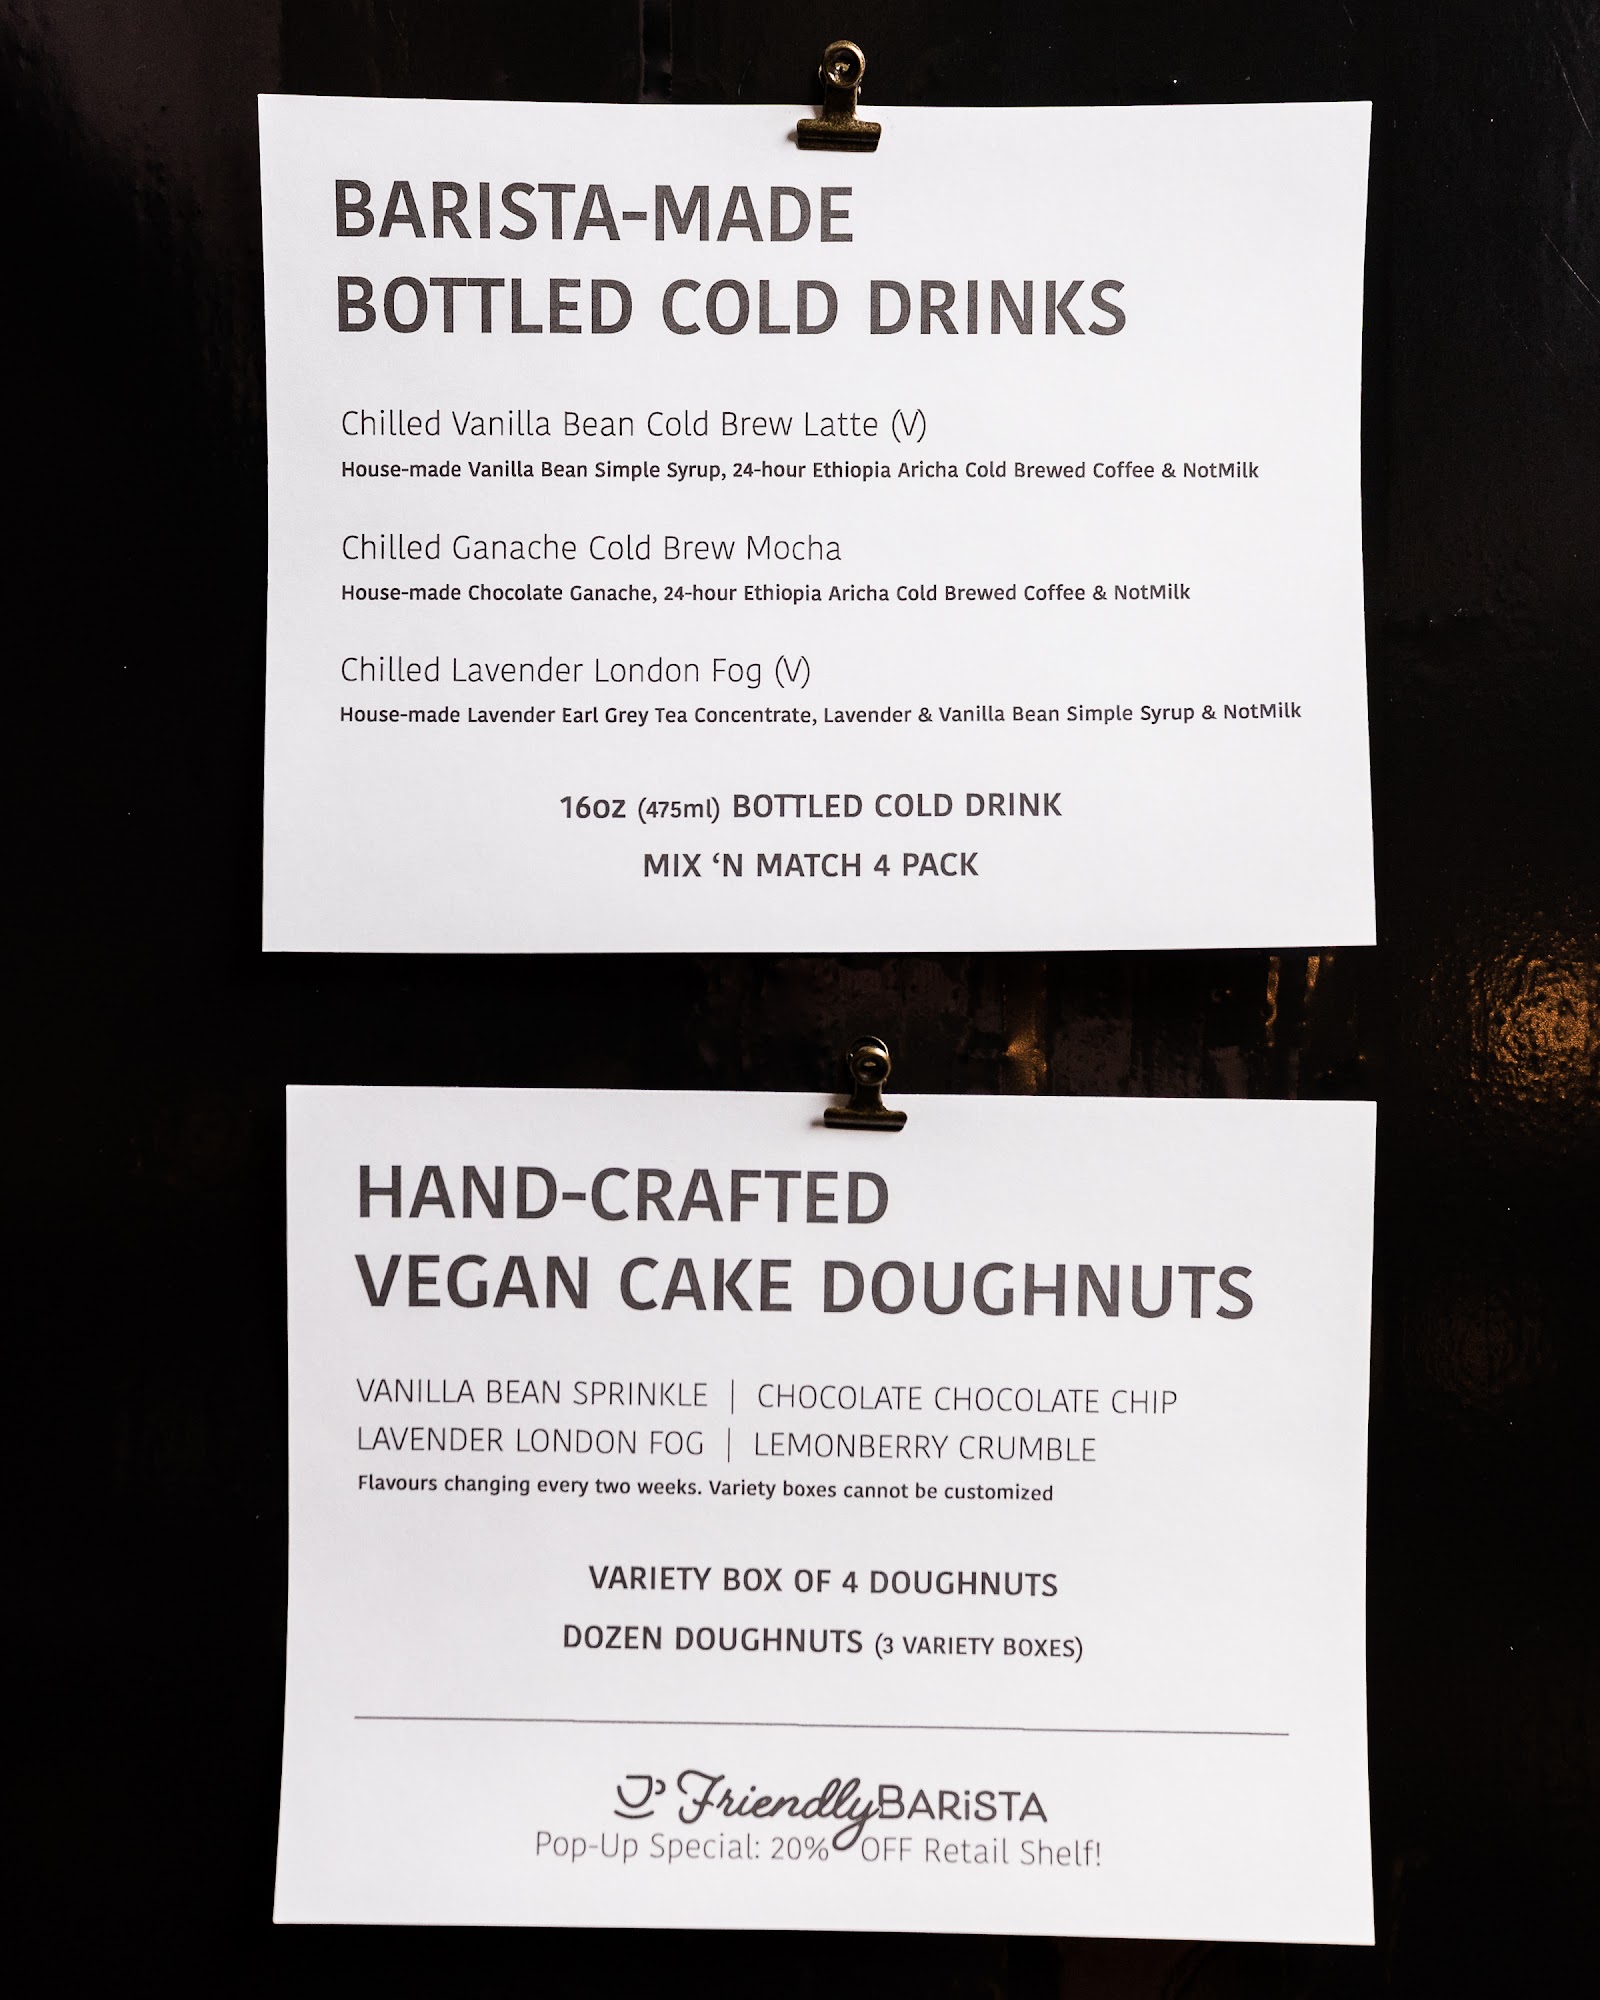 BARISTA-MADE
BOTTLED COLD DRINKS
Chilled Vanilla Bean Cold Brew Latte (V)
House-made Vanilla Bean Simple Syrup, 24-hour Ethiopia Aricha Cold Brewed Coffee & NotMilk
Chilled Ganache Cold Brew Mocha
House-made Chocolate Ganache, 24-hour Ethiopia Aricha Cold Brewed Coffee & NotMilk
Chilled Lavender London Fog (V)
House-made Lavender Earl Grey Tea Concentrate, Lavender & Vanilla Bean Simple Syrup & NotMilk
16oz (475ml) BOTTLED COLD DRINK
MIX ‘N MATCH 4 PACK
HAND-CRAFTED
VEGAN CAKE DOUGHNUTS
VANILLA BEAN SPRINKLE | CHOCOLATE CHOCOLATE CHIP
LAVENDER LONDON FOG | LEMONBERRY CRUMBLE
Flavours changing every two weeks. Variety boxes cannot be customized
VARIETY BOX OF 4 DOUGHNUTS
DOZEN DOUGHNUTS (3 VARIETY BOXES)
FriendlyBARiSTA
Pop-Up Special: 20% OFF Retail Shelf!